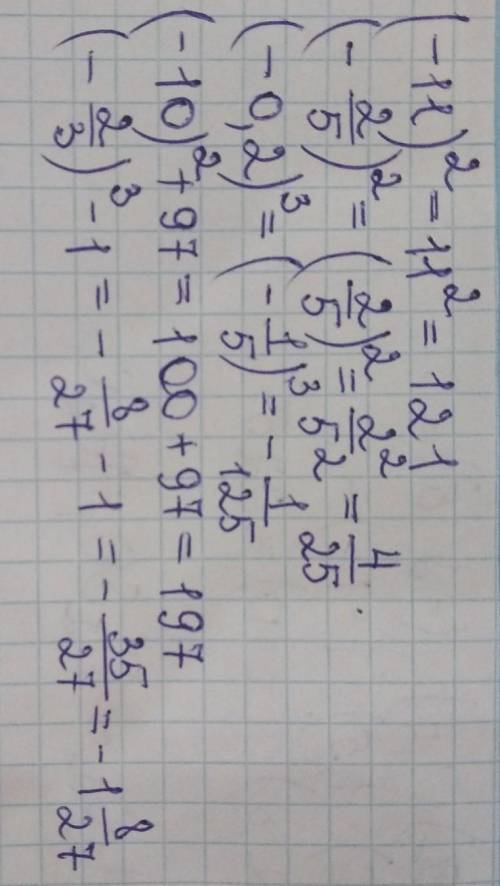 (-11)² = 11² = 121
(-2/5)² = (2/5)² = 2²/5² = 4/25.
(-0,2)³ = (-1/5)³ = -1/125
(-10)² + 97 = 100 + 97 = 197
(-2/3)³ - 1 = -8/27 - 1 = -35/27 = -1 8/27